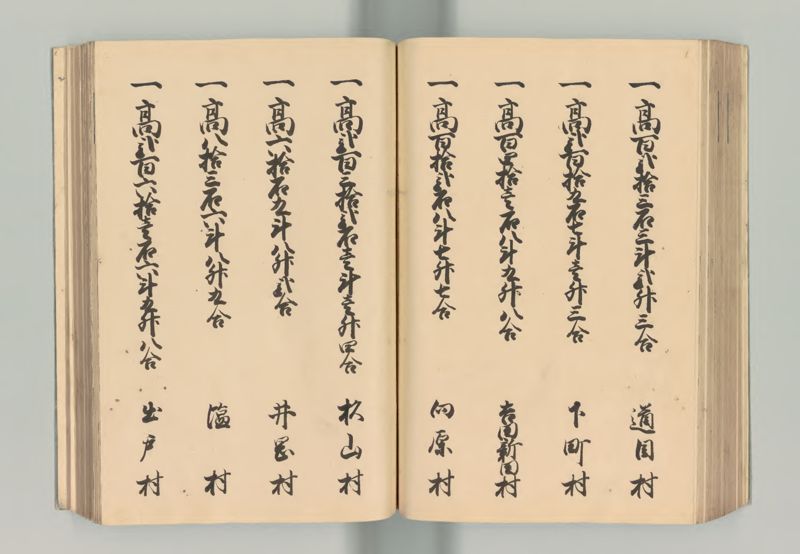 一高百弐拾三石三斗弐升三合 道目村
一高弐百拾五石七斗壱升三合 下町村
一高百四拾壱石八斗五升八合 吉田新田村
一高百拾弐石八斗七升七合 向原村
一高弐百三拾弐石壱斗壱升四合 松山村
一高六拾石九斗八升弐合 井岡村
一高八拾三石六斗八升五合 塩村
一高弐百六拾壱石六斗五升八合 出戸村